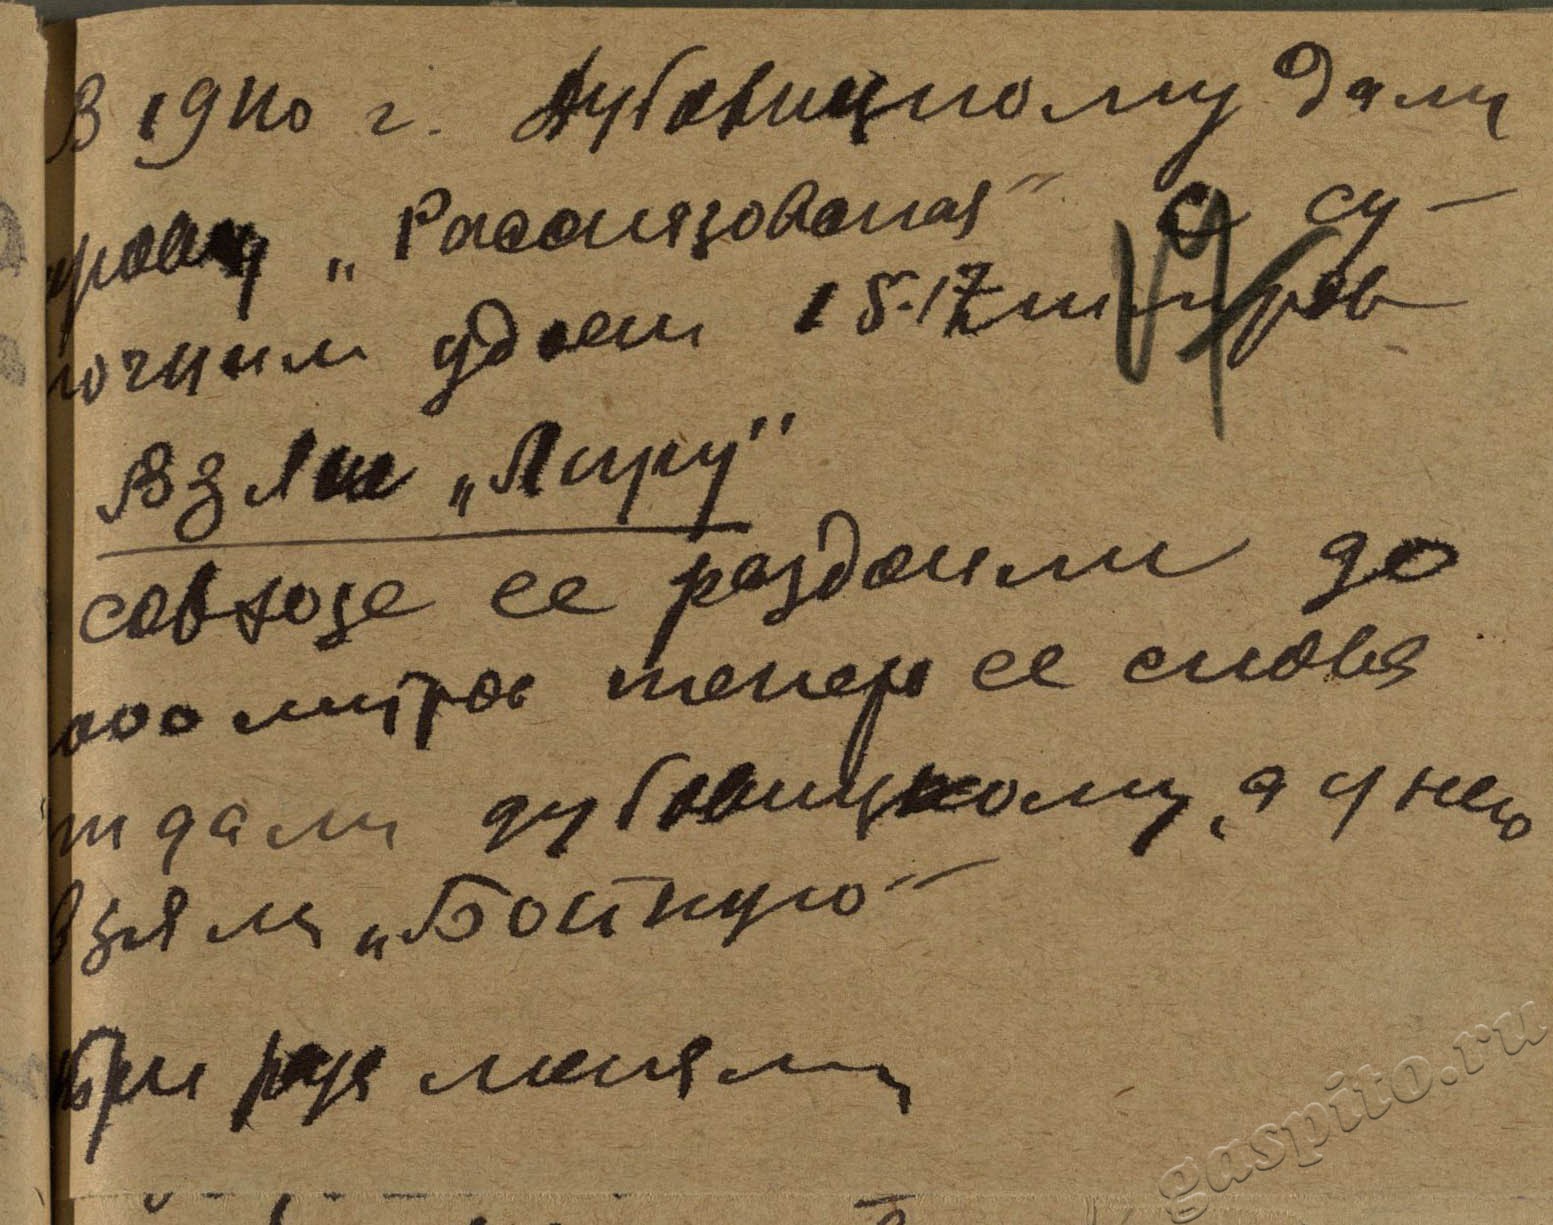 В 1940 г. Дубовицкому дали
корову „Рассказовская" с су-
точным удоем 15-17 литров
Взяли „Лиру"
совхозе ее раздоили до
000 литров теперь ее снова
дали дубовицкому, а у него
взяли „Бойкую"
три раза меняли
gaspito.ru